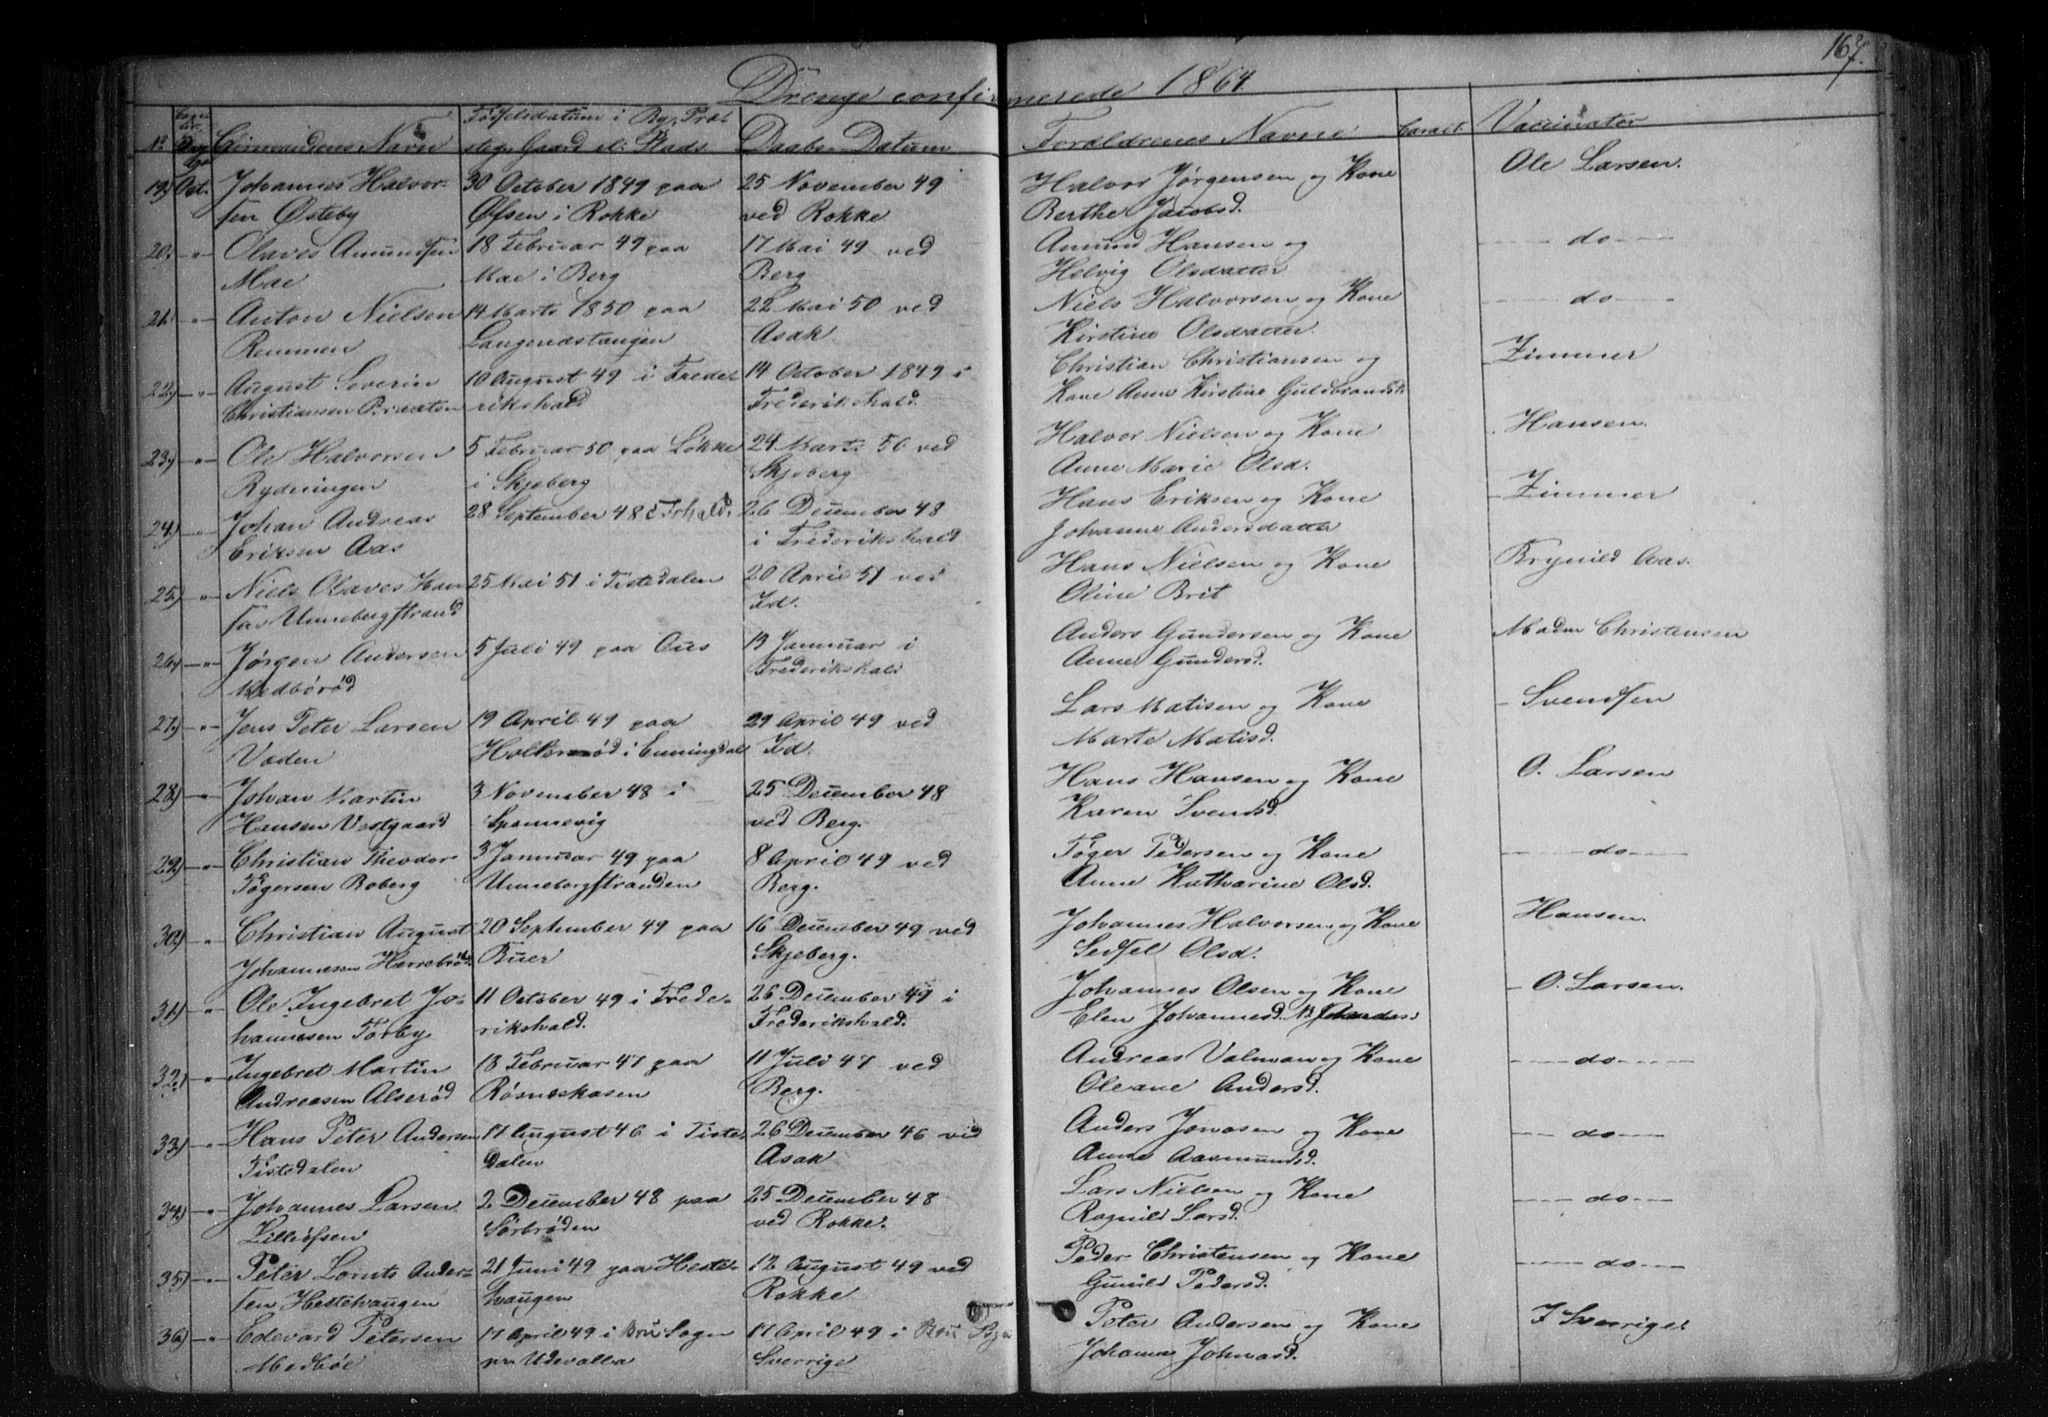 167.
Drenge confirmerede 1864
No Confirmandens Navn Fødselsdatum i By, Præstegj. Gaard el. Plads Daabs-Datum Forældrenes Navne Caract. Vaccinator
19) Oct. Johannes Halvor- 30 October 1849 paa 25 November 49 Halvor Jørgensen og Kone Ole Larsen.
sen Østeby Øfsen i Rokke ved Rokke Berthe Jacobsd.
20) " Olaves Amundsen 18 Februar 49 paa 17 Mai 49 ved Amund Hansen og do
Mae Mae i Berg Berg Helvig Olsdatter
21) " Anton Nielsen 14 Marts 1850 paa 22 Mai 50 ved Niels Halvorsen og Kone do
Remmen Langendstangen Asak Kirstine Olsdatter
22) " August Severin 10 August 49 i Frede- 14 October 1849 i Christian Christiansen og Zimmer
Christiansen Braaten rikshald Frederikshald. Kone Anne Kirstine Guldbrandsd.
23) " Ole Halvorsen 5 Februar 50 paa Løkke 24 Marts 50 ved Halvor Nielsen og Kone Hansen.
Rydningen i Skjeberg Skjeberg Anne Marie Olsd.
24) " Johan Andreas 28 September 48 i Frhald. 26 December 48 Hans Eriksen og Kone Zimmer
Eriksen Aas i Frederikshald Johanne Andersdatter
25) " Niels Olaves Han 25 Mai 51 i Tistedalen 20 April 51 ved Hans Nielsen og Kone Brynild Aas.
sen Unnebergstrand Id. Oline Brit
26) " Jørgen Andersen 5 Juli 49 paa Ous 13 Januar i Anders Gundersen og Kone Madm Christensen
Medbörød Frederikshald Anne Gundersd.
27) " Jens Peter Larsen 19 April 49 paa 29 April 49 ved Lars Matisen og Kone Svendsen
Vaden Holtenrød i Enningdal Id. Marte Matisd.
28) " Johan Martin 3 November 48 i 25 December 48 Hans Hansen og Kone O. Larsen
Hansen Vestgaard Sponnevig ved Berg. Karen Svendsd.
29) " Christian Theodor 3 Januar 49 paa 8 April 49 ved Føger Pedersen og Kone do
Føgersen Roberg Unnebergstranden Berg. Anne Katharine Olsd.
30) " Christian August 20 September 49 paa 16 December 49 ved Johannes Halvorsen og Kone Hansen.
Johannesen Herrebrød. Buer Skjeberg. Seissel Olsd.
31) " Ole Ingebret Jo- 11 October 49 i Frede- 26 December 49 i Johannes Olsen og Kone O. Larsen.
hannesen Torby rikshald. Frederikshald. Elen Johannesd.
32) " Ingebret Martin 18 Februar 47 paa 11 Juli 47 ved Andreas Valman og Kone do
Andreasen Alserød Røsneskasen Berg. Oleane Andersd.
33) " Hans Peter Andersen 17 August 46 i Tiste- 26 December 46 ved Anders Jonasen og Kone do
Tistedalen dalen Asak Anne Aasmundsd.
34) " Johannes Larsen 2 December 48 paa 25 December 48 Lars Nielsen og Kone do
Lilleöfsen Sörbrøden ved Rokke. Ragnild Larsd.
35) " Peter Lornts Ander- 21 Juni 49 paa Heste- 12 August 49 ved Peder Christensen og Kone do
sen Hestehaugen haugen Rokke Gunild Pedersd.
36) " Edevard Petersen 17 April 49 i Bru Sogn 17 April 49 i Bru Sogn Peter Andersen og Kone I Sverrige.
Medböe pr Udevalla Sverrige Johanne Johnasd.